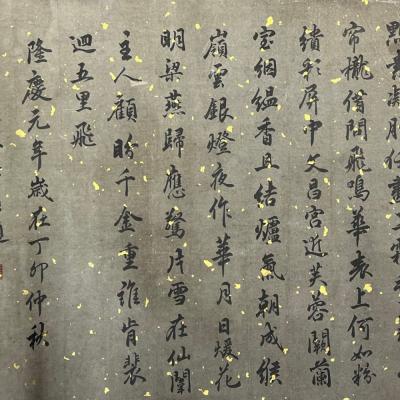 點素凝任畫工霜
帘攏借問飛鳴華表上何如粉
繢彩屏中文昌宮近芙蓉闕蘭
室絪縕香且結爐氣朝成緱
嶺雲銀燈夜作華月日煖花
明梁燕歸應驚片雪在仙闈
主人顧盼千金重誰肯裴
迴五里飛
隆慶元年歲在丁卯仲秋